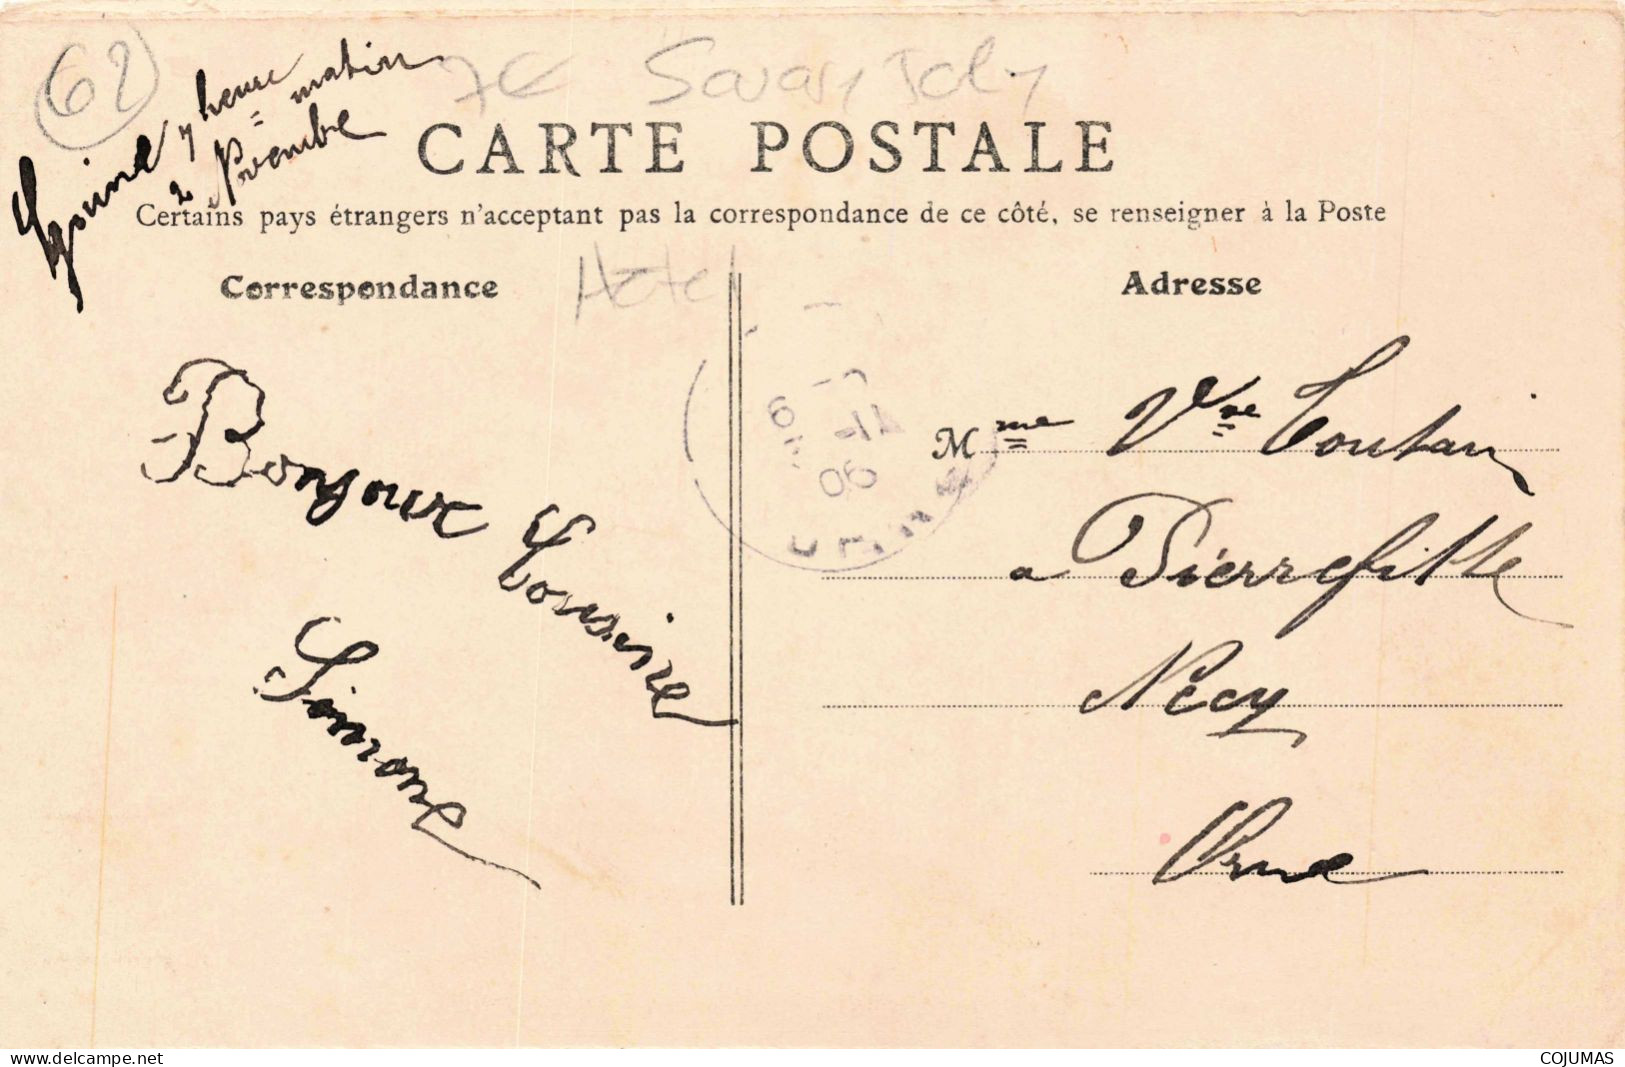 62
7 heure matin
2 Novembre
7€ Savary Joly
CARTE POSTALE
Certains pays étrangers n'acceptant pas la correspondance de ce côté, se renseigner à la Poste
Correspondance
Hotel
Adresse
Bonjour Cousine
Simone
Mme Vve Toutain
a Pierrefitte
Nécy
Orne
06
www.delcampe.net
COJUMAS